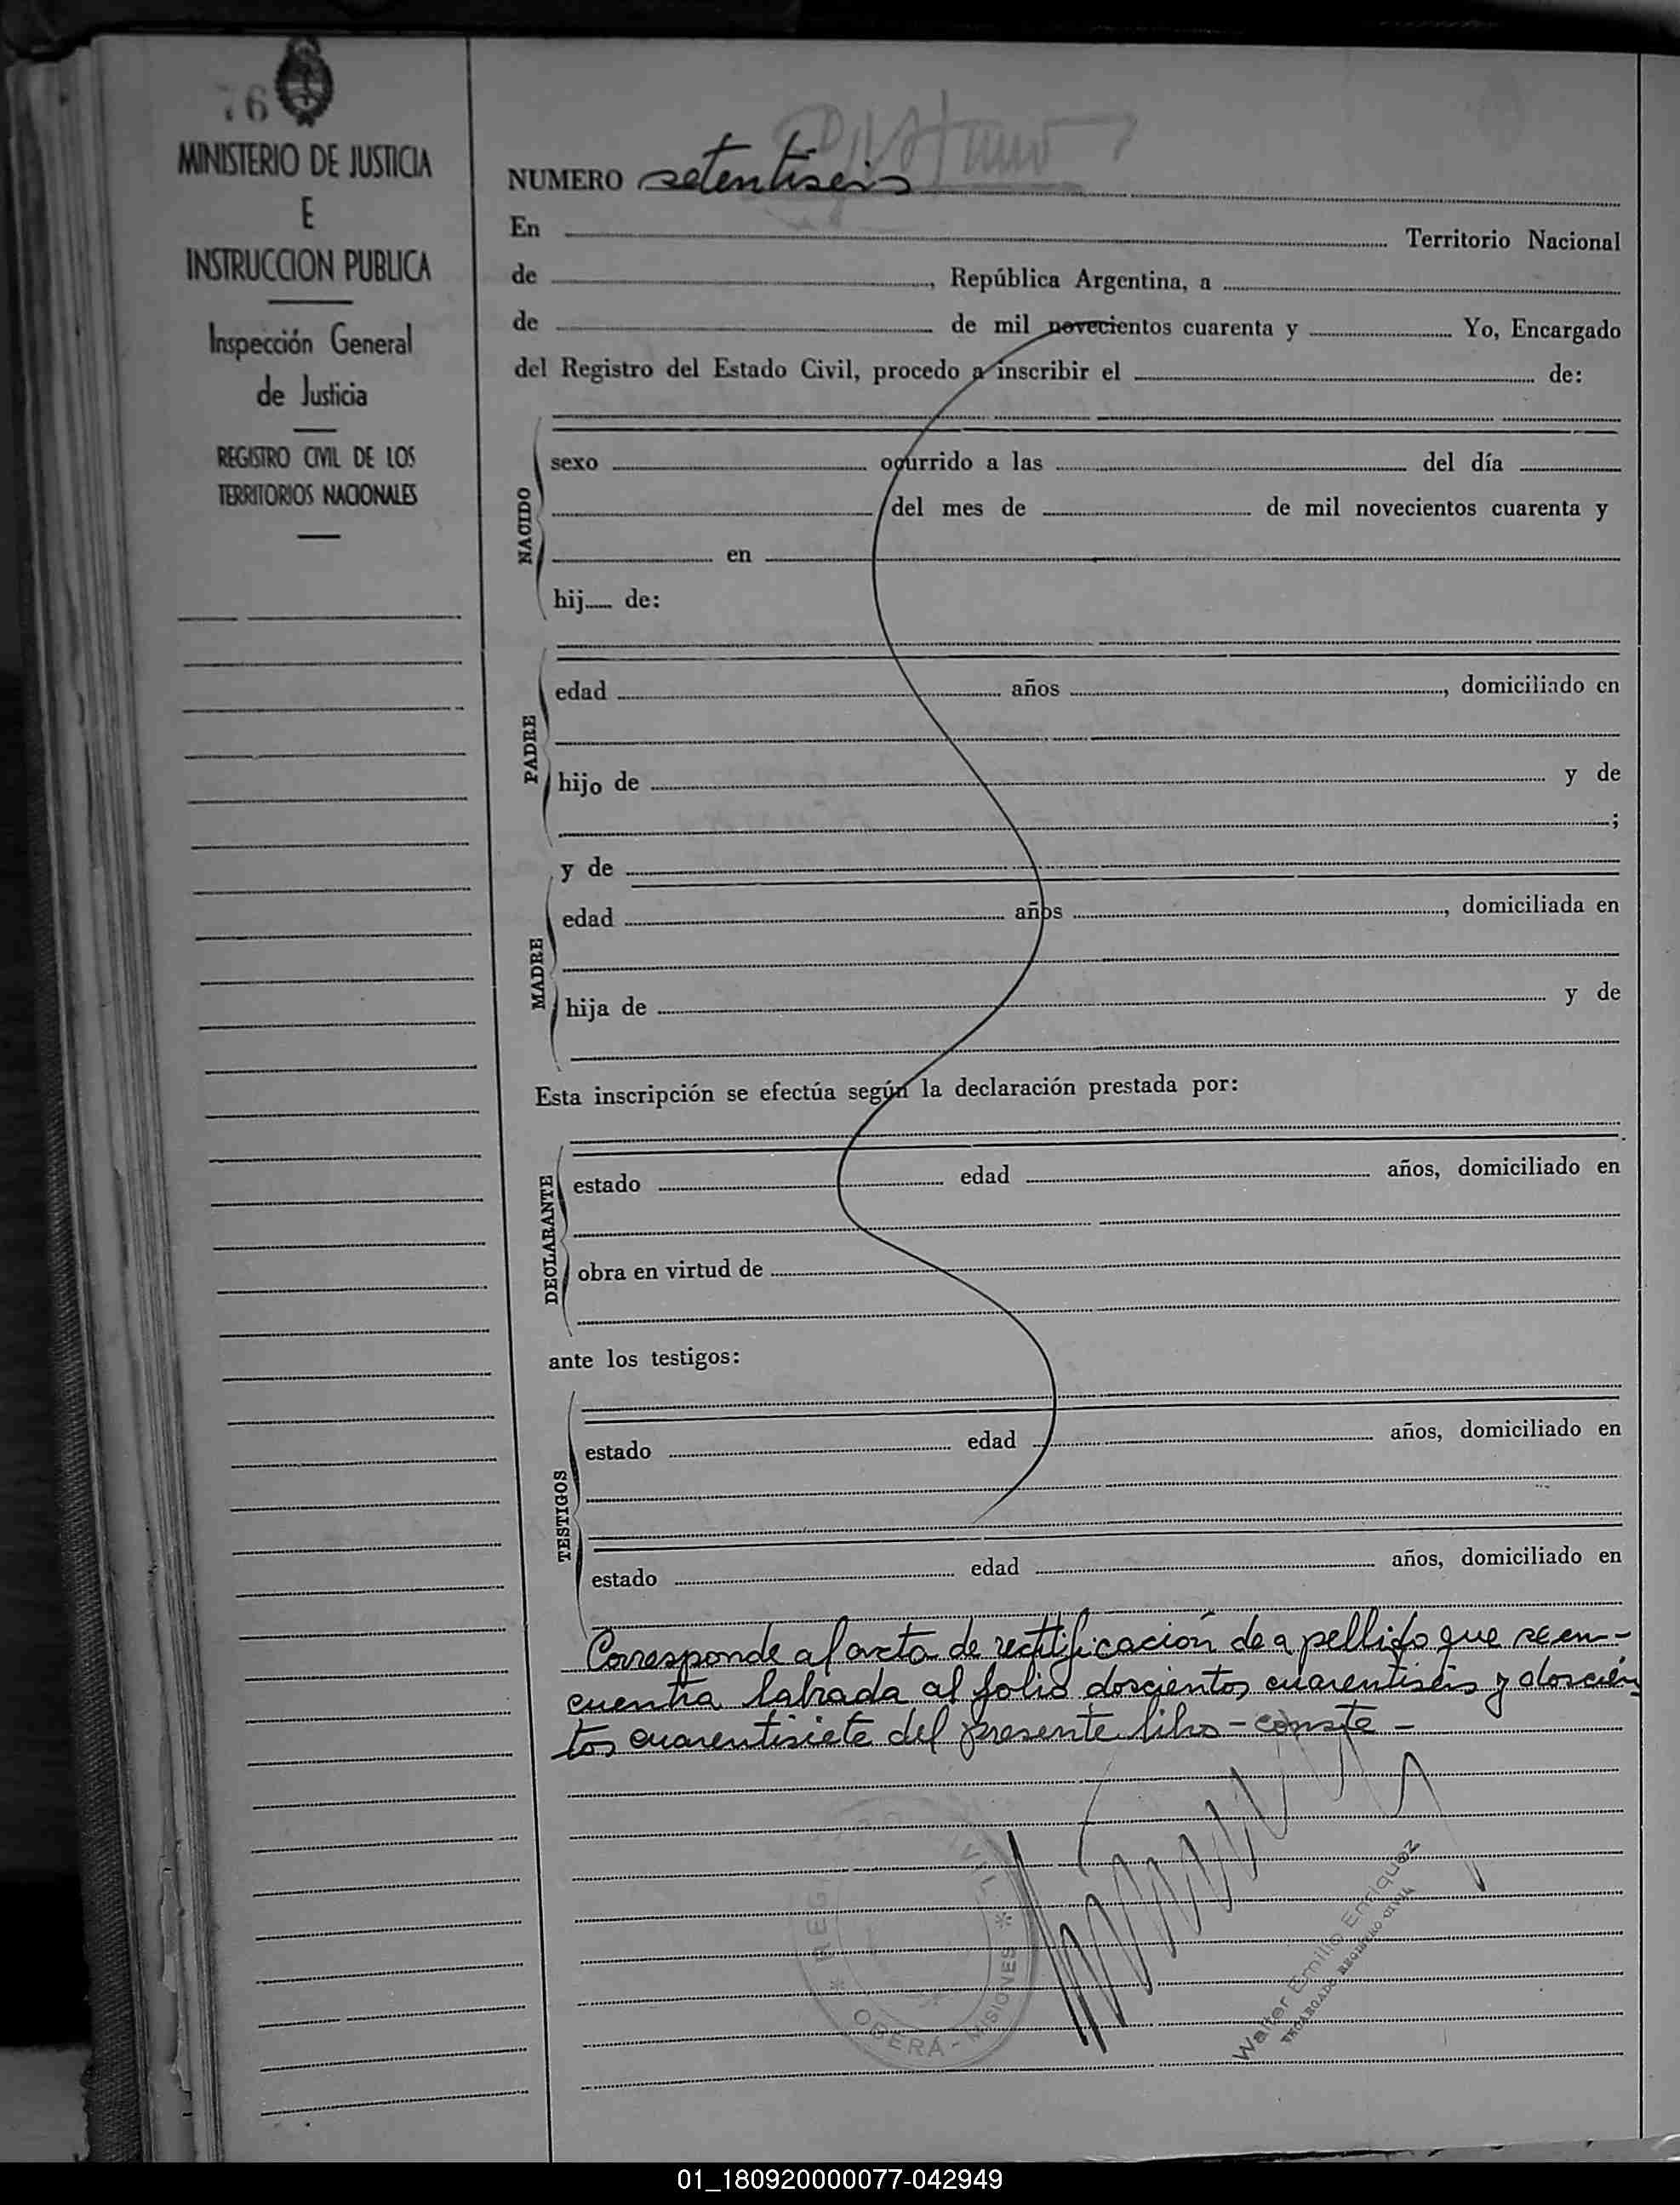 76
MINISTERIO DE JUSTICIA
E
INSTRUCCION PUBLICA
Inspección General
de Justicia
REGISTRO CIVIL DE LOS
TERRITORIOS NACIONALES
NUMERO setentiseis
En Territorio Nacional
de , República Argentina, a
de de mil novecientos cuarenta y Yo, Encargado
del Registro del Estado Civil, procedo a inscribir el de:
NACIDO
sexo ocurrido a las del día
del mes de de mil novecientos cuarenta y
en
hij de:
PADRE
edad años , domiciliado en
hijo de y de
;
y de
MADRE
edad años , domiciliada en
hija de y de
Esta inscripción se efectúa según la declaración prestada por:
DECLARANTE
estado edad años, domiciliado en
obra en virtud de
ante los testigos:
TESTIGOS
estado edad años, domiciliado en
estado edad años, domiciliado en
Corresponde al acta de rectificación de apellido que se en-
cuentra labrada al folio doscientos cuarentiseis y doscien
tos cuarentisiete del presente libro - conste -
OBERÁ - MISIONES
Walter Emilio Enriquez
ENCARGADO REGISTRO CIVIL
01_180920000077-042949